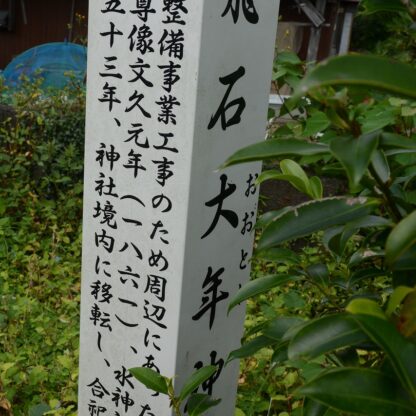 石大年神
おおと
整備事業工事のため周辺にあった
尊像文久元年(一八六一)、水神
五十三年、神社境内に移転し、合祀